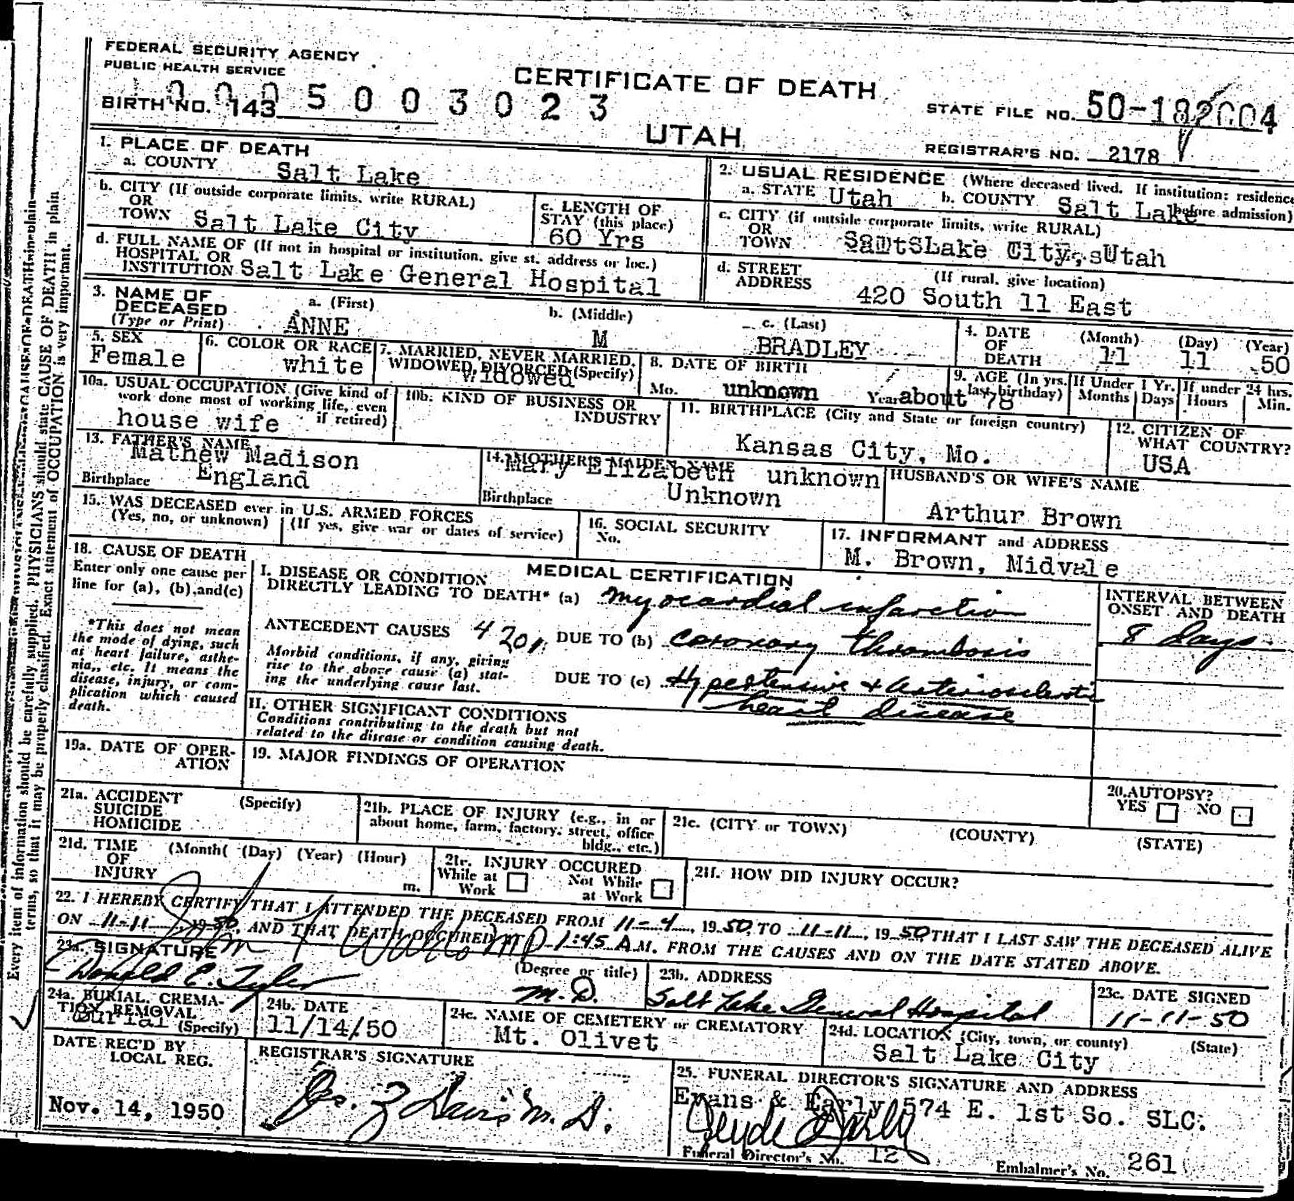 FEDERAL SECURITY AGENCY
PUBLIC HEALTH SERVICE
CERTIFICATE OF DEATH
BIRTH NO. 143
5 0 0 3 0 2 3
STATE FILE NO. 50-182004
UTAH
REGISTRAR'S NO. 2178
1. PLACE OF DEATH
a. COUNTY Salt Lake
2. USUAL RESIDENCE (Where deceased lived. If institution: residence before admission)
a. STATE Utah b. COUNTY Salt Lake
b. CITY (If outside corporate limits, write RURAL)
OR
TOWN Salt Lake City
c. LENGTH OF
STAY (this place)
60 Yrs
c. CITY (if outside corporate limits, write RURAL)
OR
TOWN Lake City, Utah
d. FULL NAME OF (If not in hospital or institution, give st. address or loc.)
HOSPITAL OR
INSTITUTION Salt Lake General Hospital
d. STREET
ADDRESS
(If rural, give location)
420 South 11 East
3. NAME OF
DECEASED
(Type or Print)
a. (First)
ANNE
b. (Middle)
M
c. (Last)
BRADLEY
4. DATE
OF
DEATH
(Month) (Day) (Year)
11 11 50
5. SEX
Female
6. COLOR OR RACE
white
7. MARRIED, NEVER MARRIED,
WIDOWED, DIVORCED (Specify)
widowed
8. DATE OF BIRTH
Mo. unknown Year
9. AGE (In yrs. last birthday)
about 78
If Under 1 Yr.
Months Days
If under 24 hrs.
Hours Min.
10a. USUAL OCCUPATION (Give kind of
work done most of working life, even
if retired)
house wife
10b. KIND OF BUSINESS OR
INDUSTRY
11. BIRTHPLACE (City and State or foreign country)
Kansas City, Mo.
12. CITIZEN OF
WHAT COUNTRY?
USA
13. FATHER'S NAME
Mathew Madison
Birthplace England
14. MOTHER'S MAIDEN NAME
Mary Elizabeth unknown
Birthplace Unknown
HUSBAND'S OR WIFE'S NAME
Arthur Brown
15. WAS DECEASED ever in U.S. ARMED FORCES
(Yes, no, or unknown) (If yes, give war or dates of service)
16. SOCIAL SECURITY
No.
17. INFORMANT and ADDRESS
M. Brown, Midvale
18. CAUSE OF DEATH
Enter only one cause per
line for (a), (b), and (c)
*This does not mean
the mode of dying, such
as heart failure, asthe-
nia, etc. It means the
disease, injury, or com-
plication which caused
death.
MEDICAL CERTIFICATION
I. DISEASE OR CONDITION
DIRECTLY LEADING TO DEATH* (a) Myocardial infarction
INTERVAL BETWEEN
ONSET AND DEATH
8 days
ANTECEDENT CAUSES 4201 DUE TO (b) coronary thrombosis
Morbid conditions, if any, giving
rise to the above cause (a) stat-
ing the underlying cause last.
DUE TO (c) Hypertensive & arteriosclerotic
heart disease
II. OTHER SIGNIFICANT CONDITIONS
Conditions contributing to the death but not
related to the disease or condition causing death.
19a. DATE OF OPER-
ATION
19. MAJOR FINDINGS OF OPERATION
20. AUTOPSY?
YES NO
21a. ACCIDENT
SUICIDE
HOMICIDE
(Specify)
21b. PLACE OF INJURY (e.g., in or
about home, farm, factory, street, office
bldg., etc.)
21c. (CITY or TOWN) (COUNTY) (STATE)
21d. TIME
OF
INJURY
(Month) (Day) (Year) (Hour)
m.
21e. INJURY OCCURED
While at
Work
Not While
at Work
21f. HOW DID INJURY OCCUR?
22. I HEREBY CERTIFY THAT I ATTENDED THE DECEASED FROM 11-4, 1950, TO 11-11, 1950 THAT I LAST SAW THE DECEASED ALIVE
ON 11-11 1950, AND THAT DEATH OCCURED AT 1:45 A.M. FROM THE CAUSES AND ON THE DATE STATED ABOVE.
23a. SIGNATURE
Donald E. Tyler
(Degree or title)
M.D.
23b. ADDRESS
Salt Lake General Hospital
23c. DATE SIGNED
11-11-50
24a. BURIAL, CREMA-
TION, REMOVAL
Burial (Specify)
24b. DATE
11/14/50
24c. NAME OF CEMETERY or CREMATORY
Mt. Olivet
24d. LOCATION (City, town, or county) (State)
Salt Lake City
DATE REC'D BY
LOCAL REG.
Nov. 14, 1950
REGISTRAR'S SIGNATURE
Geo. Z Davis M.D.
25. FUNERAL DIRECTOR'S SIGNATURE AND ADDRESS
Evans & Early 574 E. 1st So. SLC.
Clyde Early
Funeral Director's No. 12
Embalmer's No. 261
Every item of information should be carefully supplied. PHYSICIANS should state CAUSE OF DEATH in plain
terms, so that it may be properly classified. Exact statement of OCCUPATION is very important.